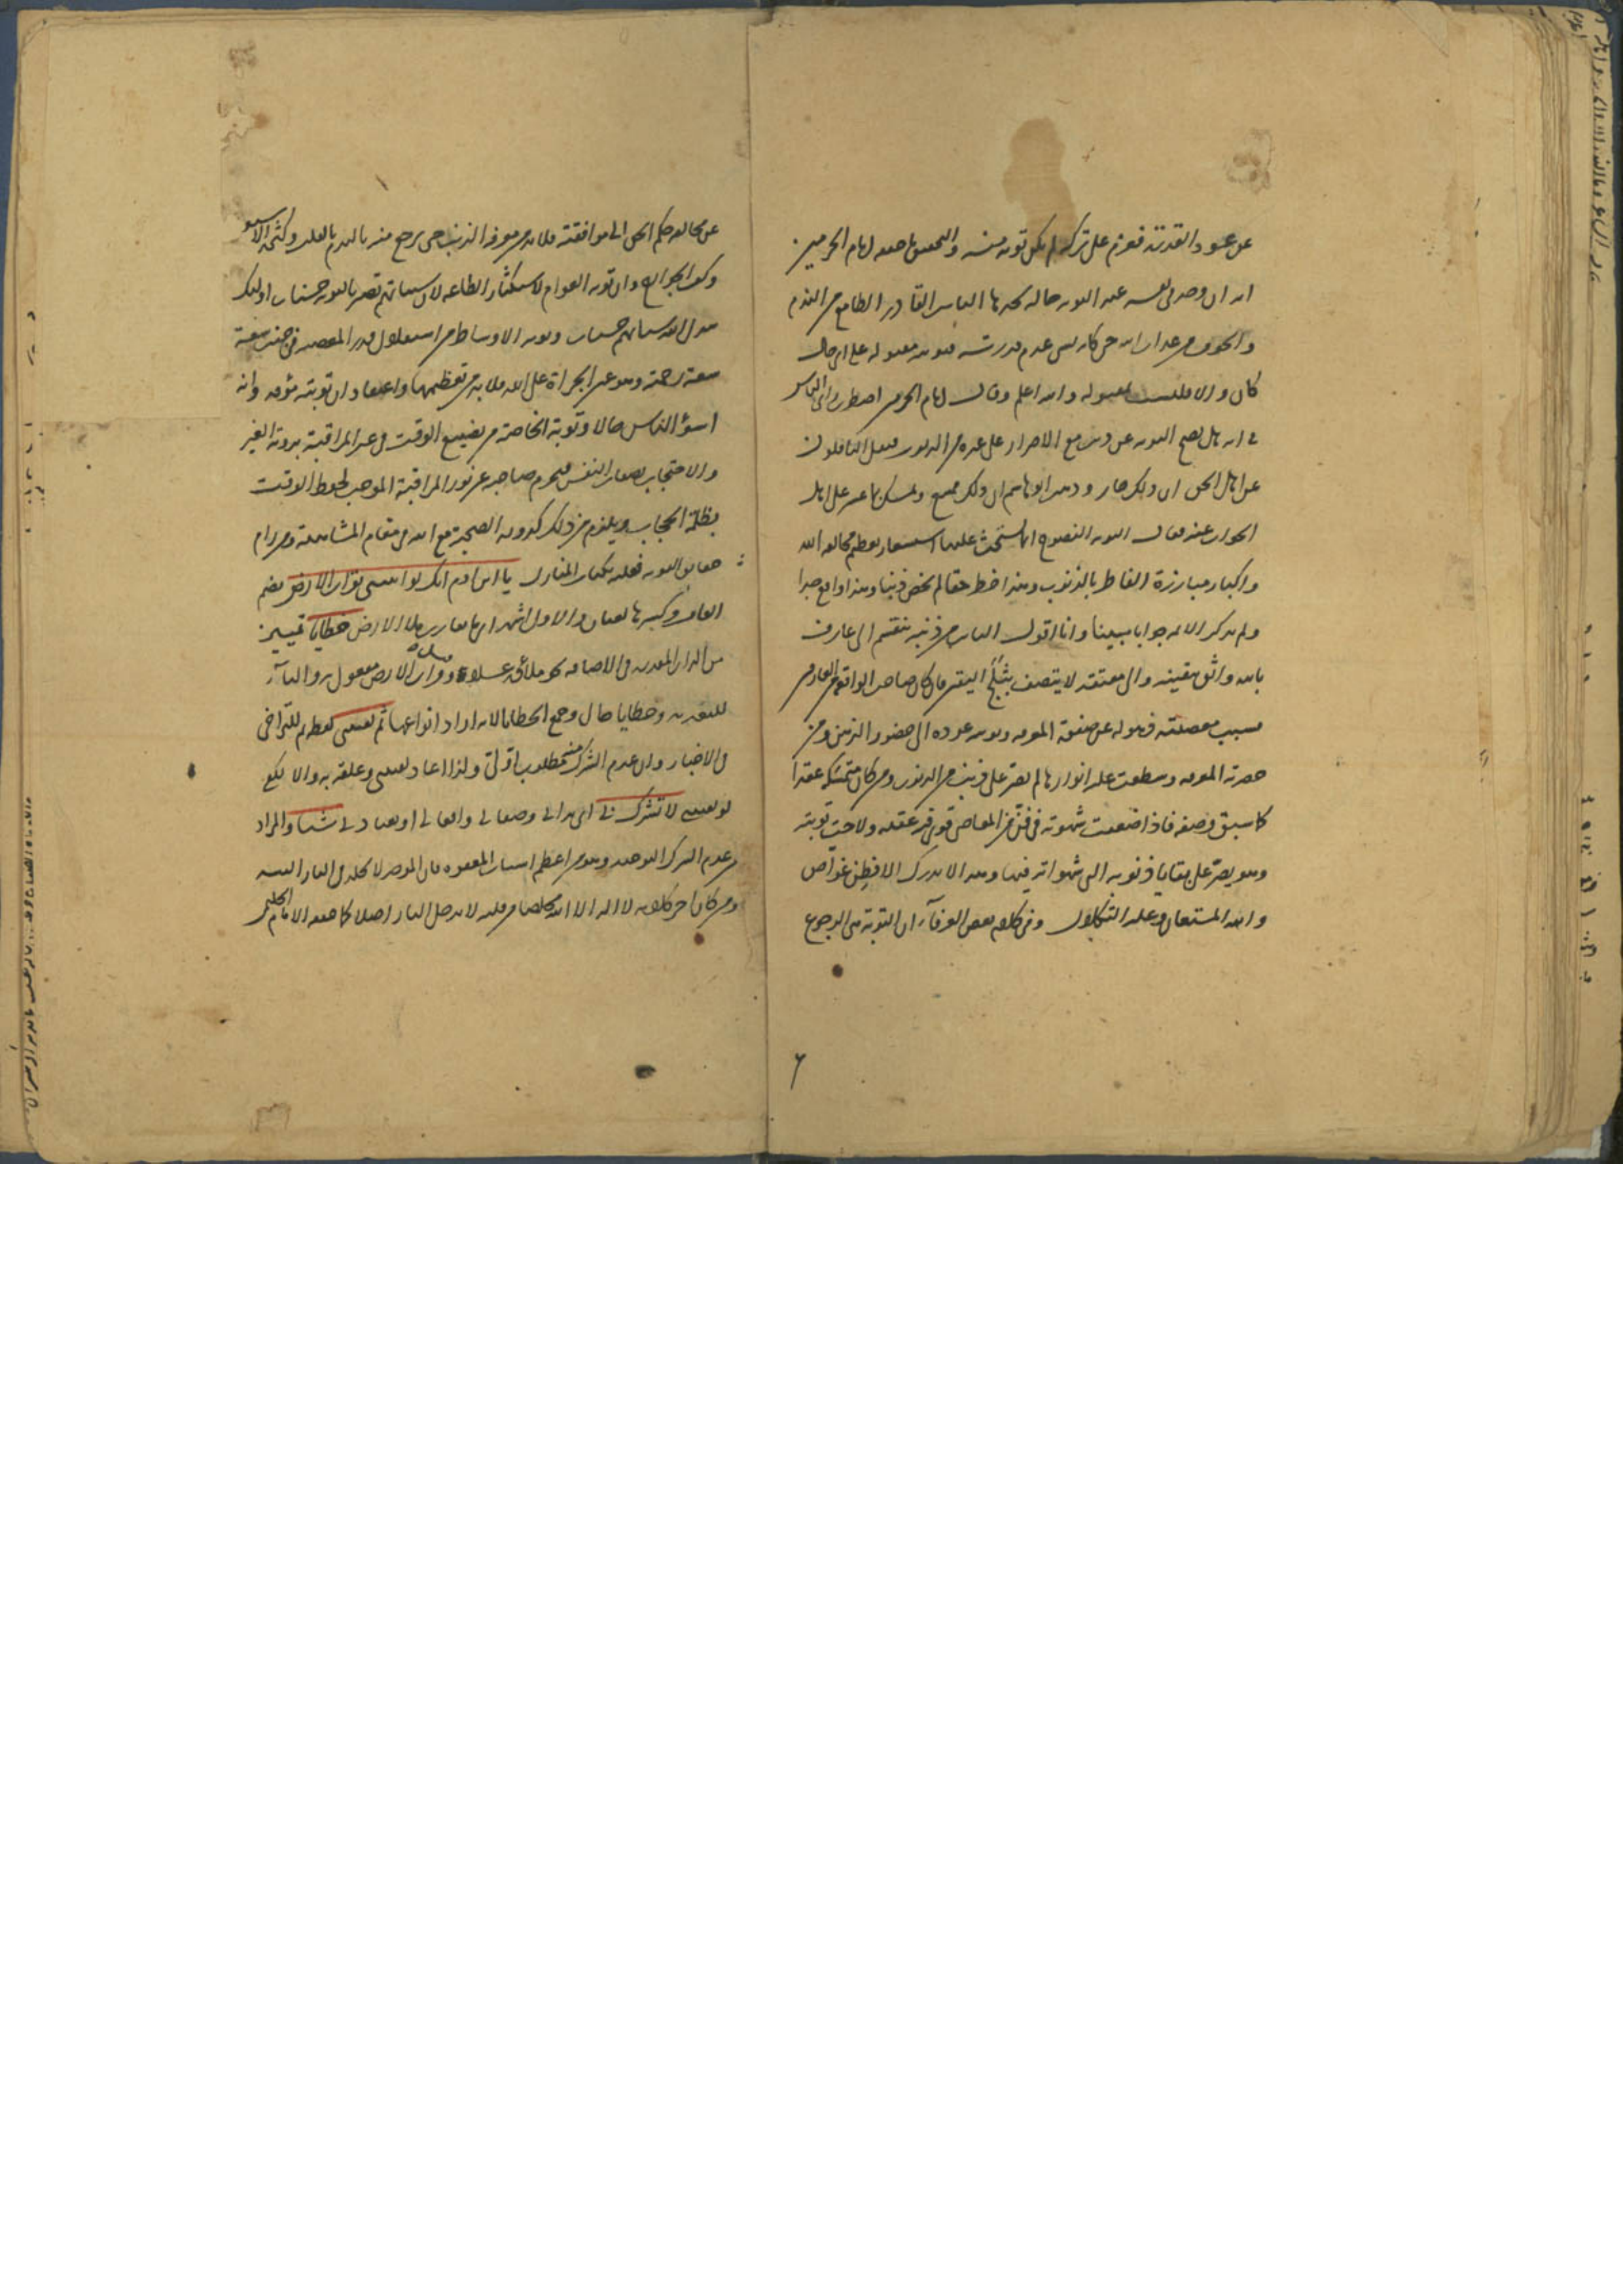 عن عود القدرة فعزم على تركه لم يكن توبة منه والتحقيق ما حققه امام الحرمين
انه ان وجد في نفسه عند التوبة حالة يجدها التايب القادر الطامع من الندم
والخوف من عذاب الله حين كان يسـ عدم قدرته فتوبته مقبولة على اي حال
كان والا فليست بمقبولة والله اعلم وقال امام الحرمين اضطرب راي الناس
في انه هل تصح التوبة عن ذنب مع الاصرار على غيره من الذنوب فنقل الناقلون
عن اهل الحق ان ذلك جايز وذهب ابو هاشم ان ذلك ممتنع وتمسك بما عسر على اهل
الجواب عنه فقال التوبة النصوح انما يستحث عليها استشعار تعظيم مخالفة الله
واكبار مبارزة الفاطر بالذنوب وهذا ضبط حقا لم يخص ذنبا وهذا واقع جدا
ولم يذكر الائمة جوابا مبينا وانا اقول التايب من ذنبه ينقسم الى عارف
بالله واثق بيقينه والى معتقد لا يتصف بثلج اليقين فان كان صاحب الواقعة من العارفين
فسبب معصيته ذهوله عن صفوة المعرفة وتوبته عوده الى حضور الذهن ومن
حضرته المعرفة وسطعت عليه انوارها لم يصر على ذنب من الذنوب ومن كان متمسكه عقدا
كما سبق وصفه فاذا ضعفت شهوته في فن من المعاصي قوي فيه عقده ولاحت توبته
وهو يصر على بقايا ذنوبه التي شهواته فيها وهذا لا يدرك الا فطن غواص
والله المستعان وعليه التكلان وفي كلام بعض العرفآء ان التوبة هي الرجوع
عن مخالفة حكم الحق الى موافقته فلا بد من معرفة الذنب حتى يرجع منه بالندم بالقلب وكثرة الاستغفار
وكف الجوارح وان توبة العوام لاستكثار الطاعة لان سيئاتهم تصير بالتوبة حسنات اولئك
يبدل الله سيئاتهم حسنات وتوبة الاوساط من استقلال قدر المعصية في جنب سعة
سعة رحمته وهو عين الجراة على الله فلا بد من تعظيمها واعتقاد ان توبته مؤفة وانه
اسؤ الناس حالا وتوبة الخاصة من تضييع الوقت في غير المراقبة بروية الغير
والاحتجاب بصفات النفس فيحرم صاحبه عن نور المراقبة الموجب لحفظ الوقت
بظلمة الحجاب ويلزم من ذلك كدورة الصحبة مع الله في مقام المشاهدة ومن رام
حقايق التوبة فعليه بكتاب المنازل يا ابن ادم انك لو اتيتني بقراب الارض بضم
القاف وكسرها لغتان والاول اشهر اي ما يقارب ملا الارض خطايا تمييز
من القراب المقدر في الاضافة نحو ملاؤه عسلا وقراب الارض مفعول به والبآء
للتعدية وخطايا حال وجمع الخطايا لارادة انواعها ثم لقيتني كلمة ثم للتراخي
في الاخبار وان عدم الشرك منه مطلوب اولي ولذا اعاد لقيتني وعلقه به والا لكفى
لو لقيتني لا تشرك بي اي بذاتي وصفاتي وافعالي او بعبادتي شيئا والمراد
من عدم الشرك التوحيد وهو من اعظم اسباب المغفرة فان الموحد لا يخلد في النار البتة
ومن كان اخر كلامه لا اله الا الله مخلصا من قلبه لا يدخل النار اصلا كما حققه الامام الحليمي